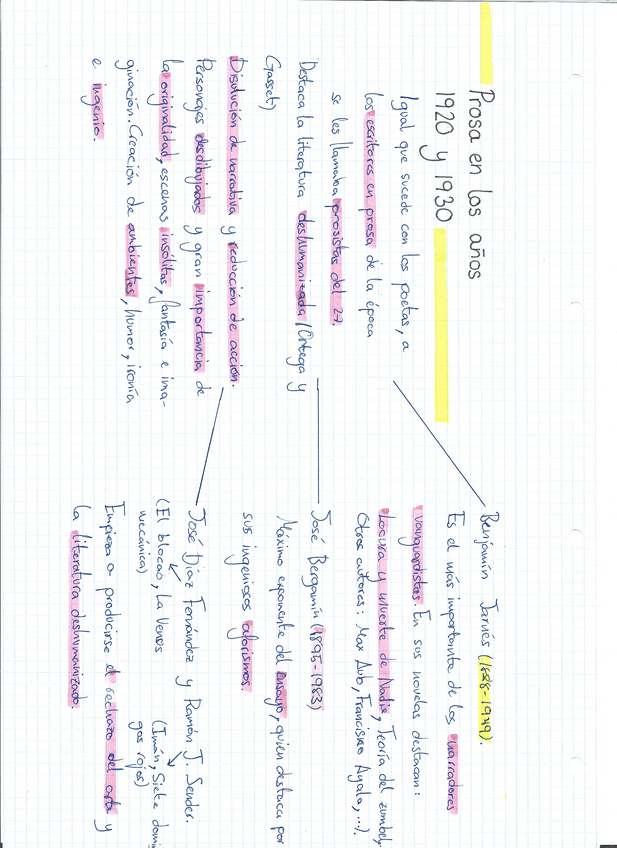 Prosa en los años
1920 y 1930
Igual que sucede con los poetas, a
los escritores en prosa de la época
se les llamaba prosistas del 27.
Destaca la literatura deshumanizada (Ortega y
Gasset)
Disolución de narrativa y reducción de acción.
Personajes desdibujados y gran importancia de
la originalidad, escenas insólitas, fantasía e ima-
ginación. Creación de ambientes, humor, ironía
e ingenio.
Benjamín Jarnés (1888-1949).
Es el más importante de los narradores
vanguardistas. En sus novelas destacan:
Locura y muerte de Nadie, Teoría del zumbel,
Otros autores: Max Aub, Francisco Ayala, ...).
José Bergamín (1895-1983)
Máximo exponente del ensayo, quien destaca por
sus ingeniosos aforismos.
José Díaz Fernández y Ramón J. Sender.
(El blocao, La Venus
mecánica)
(Imán, Siete domin
gos rojos)
Empieza a producirse el rechazo del arte y
la literatura deshumanizada.